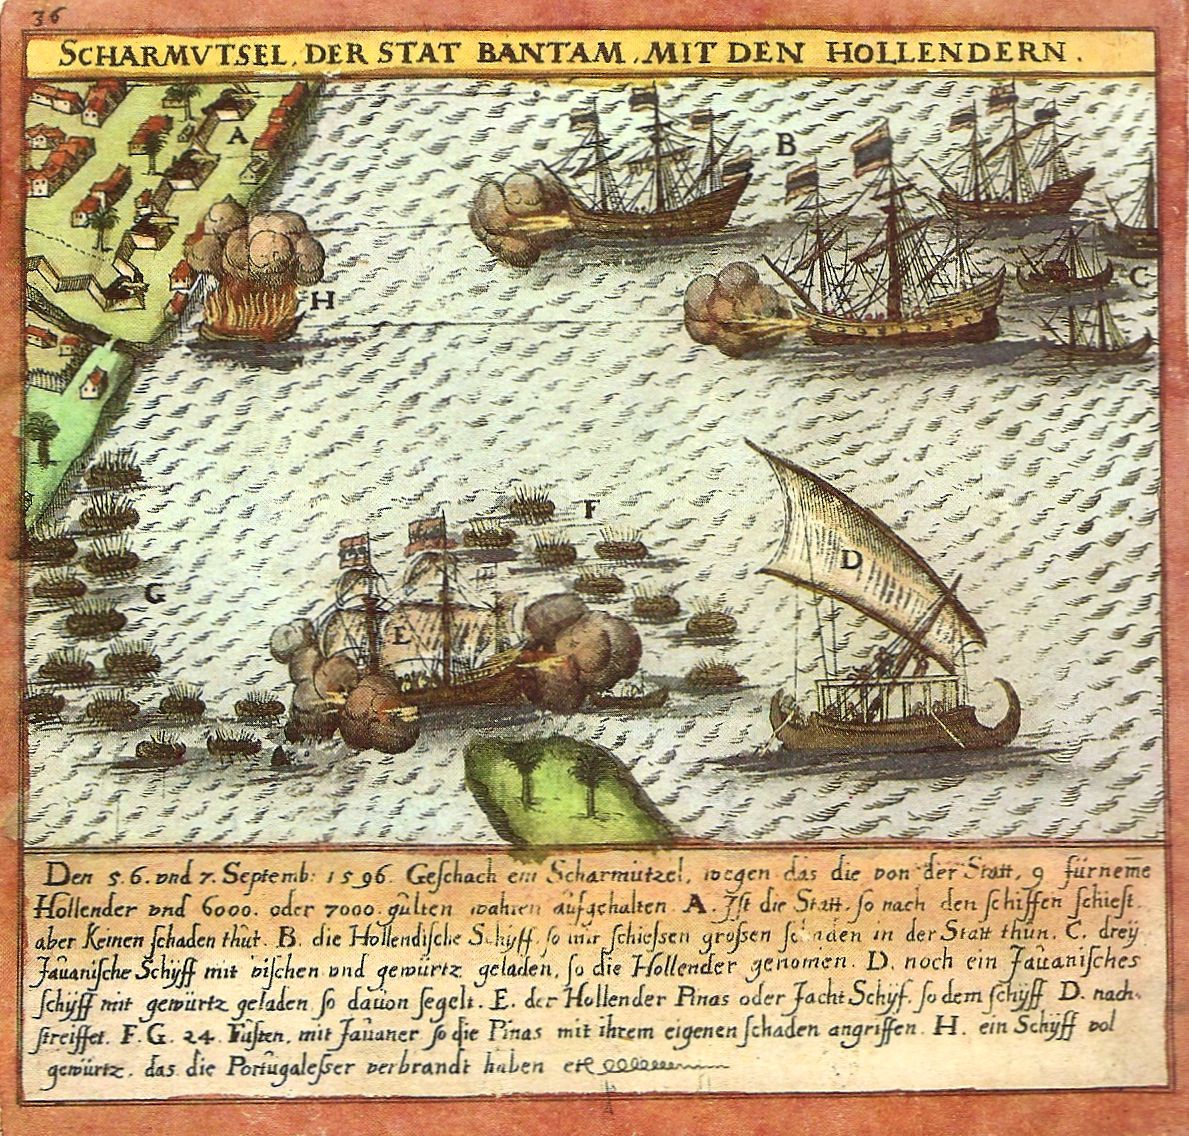 36
SCHARMVTSEL, DER STAT BANTAM, MIT DEN HOLLENDERN.
A
B
H
C
F
D
G
E
Den 5. 6. vnd 7. Septemb: 1596. Geschach ein Scharmützel, wegen das die von der Statt, 9 fürneme̅
Hollender vnd 6000. oder 7000. gülten wahren aüfgehalten. A. Ist die Statt. so nach den schiffen schiest.
aber Keinen schaden thüt. B. die Hollendische Schyff. so mit schiessen grossen schaden in der Statt thün. C. dreÿ
Jaüanische Schÿff mit vischen vnd gewürtz geladen, so die Hollender genomen. D. noch ein Jaüanisches
schÿff mit gewürtz geladen so daüon segelt. E. der Hollender Pinas oder Jacht Schÿf. so dem schÿff D. nach-
streiffet. F. G. 24. Füsten, mit Jaüaner so die Pinas mit ihrem eigenen schaden angriffen. H. ein Schÿff vol
gewürtz. das die Portügalesser verbrandt haben etc